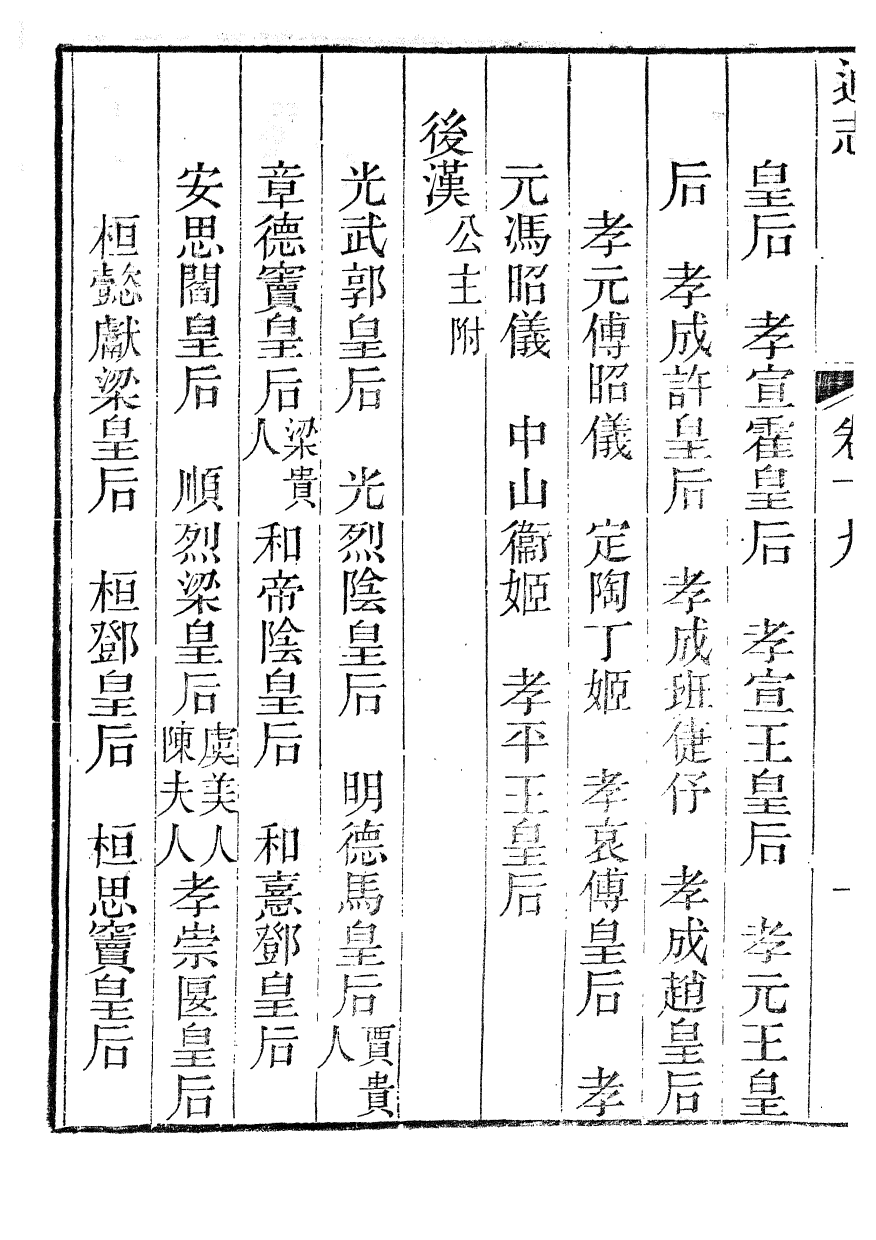 通志 卷十九 一
皇后 孝宣霍皇后 孝宣王皇后 孝元王皇
后 孝成許皇后 孝成班倢伃 孝成趙皇后
孝元傅昭儀 定陶丁姬 孝哀傅皇后 孝
元馮昭儀 中山衞姬 孝平王皇后
後漢公主附
光武郭皇后 光烈陰皇后 明德馬皇后賈貴人
章德竇皇后梁貴人 和帝陰皇后 和熹鄧皇后
安思閻皇后 順烈梁皇后虞美人陳夫人 孝崇匽皇后
桓懿獻梁皇后 桓鄧皇后 桓思竇皇后